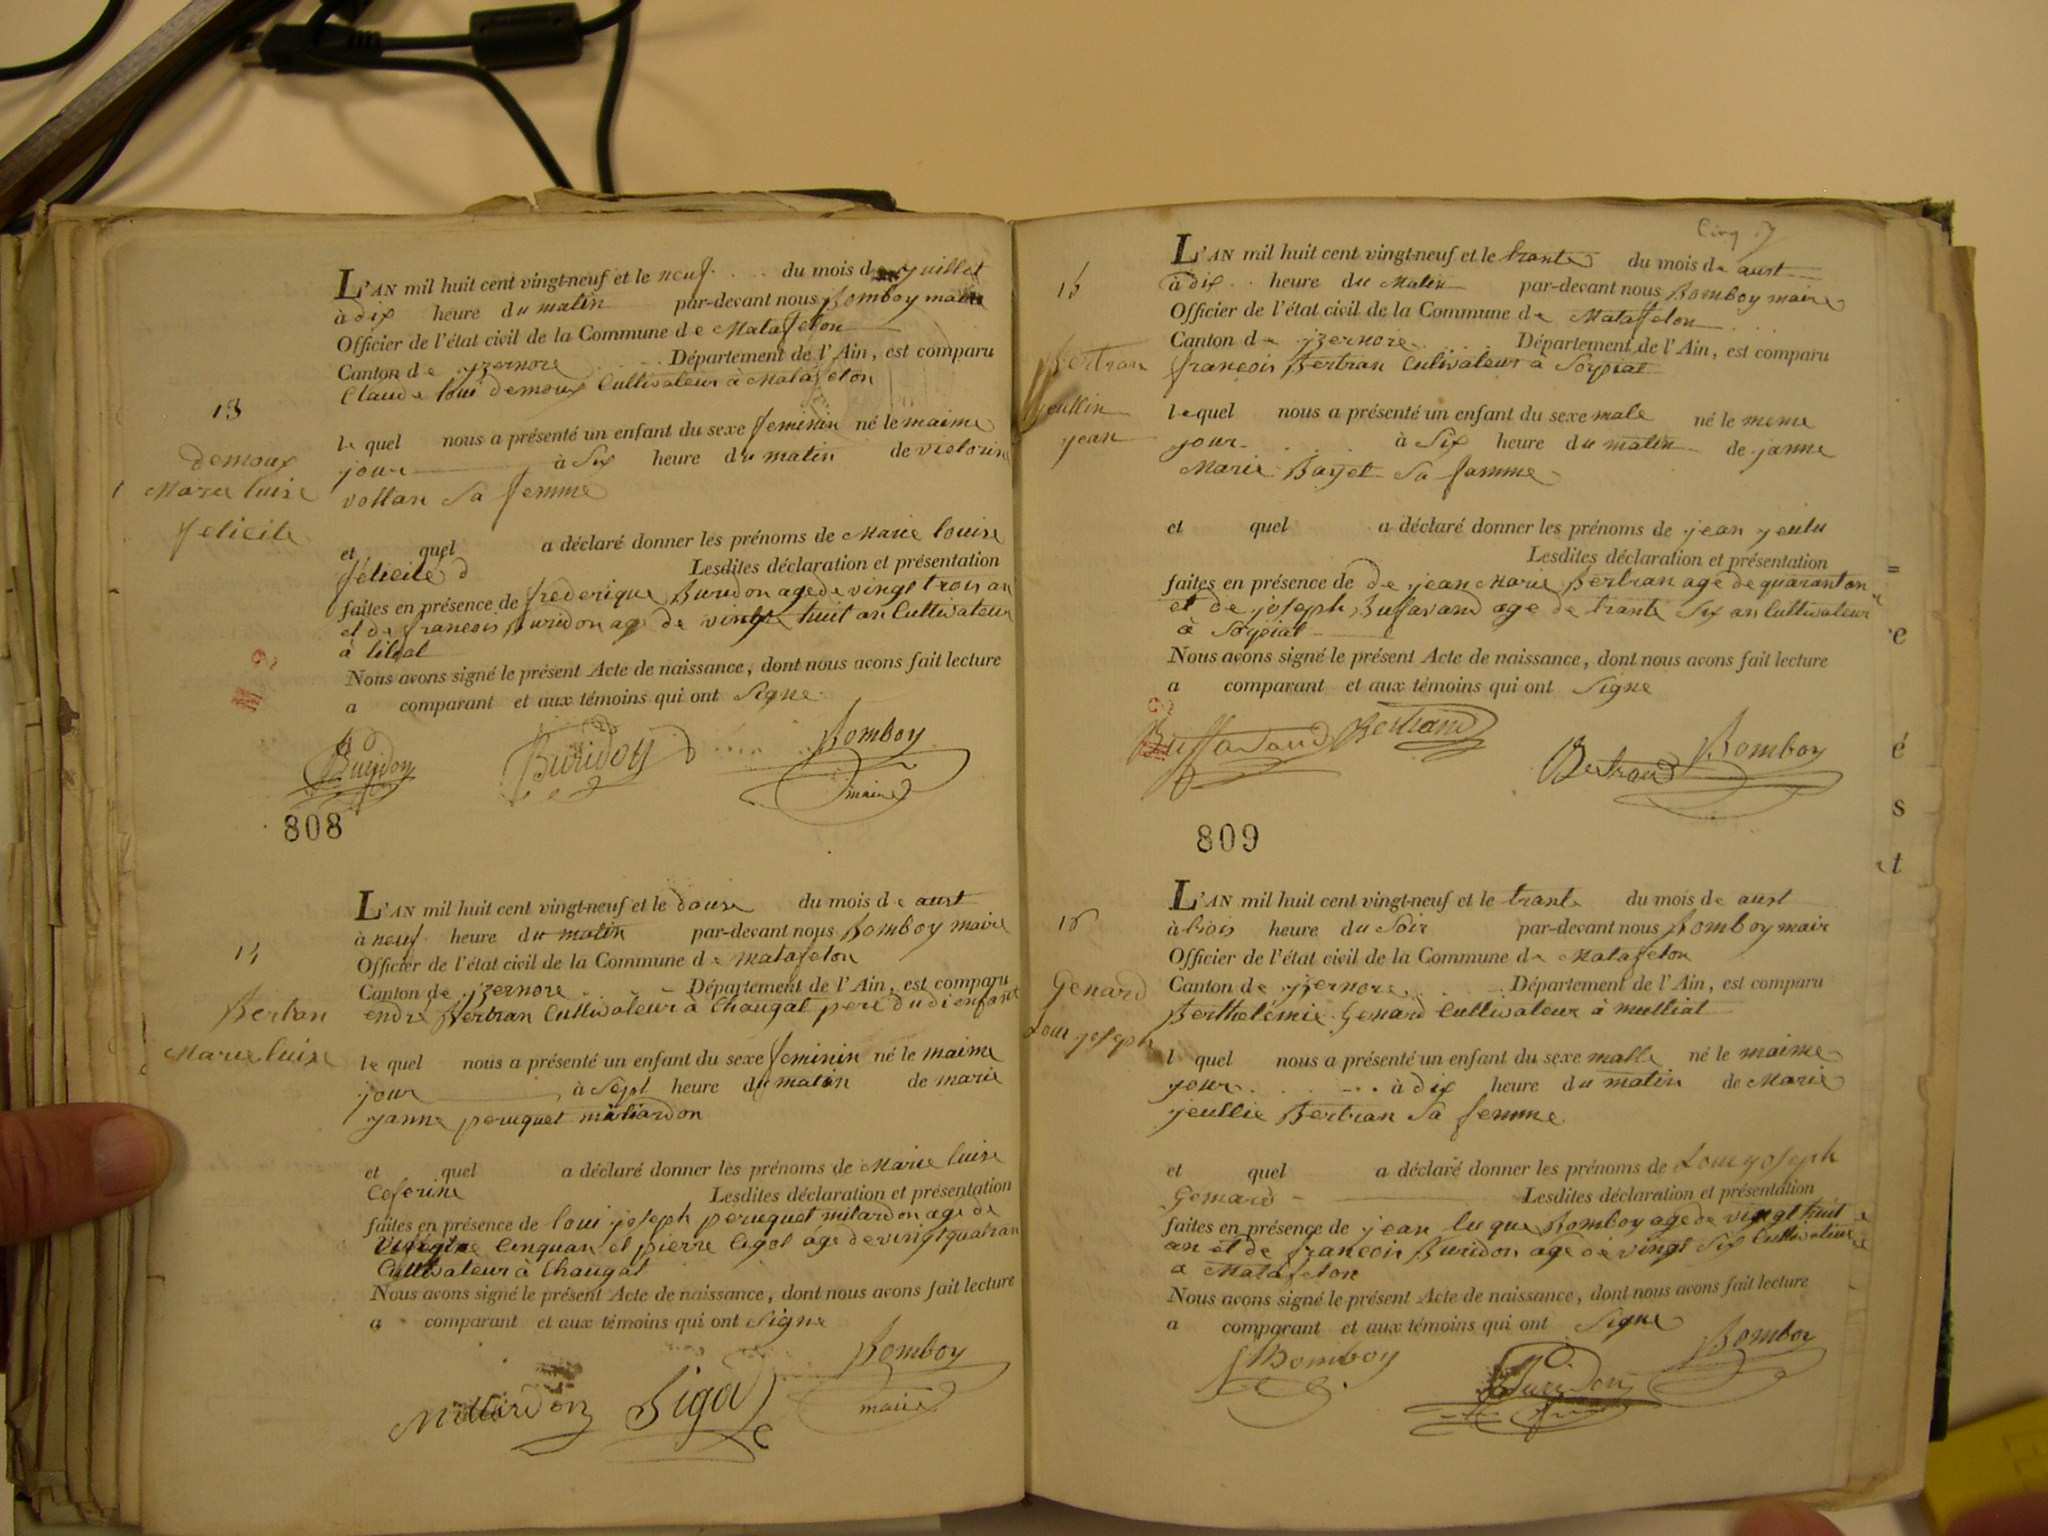 L'AN mil huit cent vingt-neuf et le neuf du mois de juillet
à dix heure du matin par-devant nous Bomboy maire
Officier de l'état civil de la Commune de Matafelon
Canton de yzernore Département de l'Ain, est comparu
Claude loui demoux Cultivateur à Matafelon
13
demoux
Marie luise
felicite
le quel nous a présenté un enfant du sexe feminin né le maime
jour à Six heure du matin de victorine
vollan Sa femme
et quel a déclaré donner les prénoms de Marie louise
félicité d Lesdites déclaration et présentation
faites en présence de frederique Buridon age de vingt trois an
et de francois Buridon age de vingt huit an Cultivateur
à
Nous avons signé le présent Acte de naissance, dont nous avons fait lecture
a comparant et aux témoins qui ont Signe
Buridon Buridon Bomboy
maire
808
L'AN mil huit cent vingt-neuf et le douse du mois de aust
à neuf heure du matin par-devant nous Bomboy maire
Officier de l'état civil de la Commune de Matafelon
Canton de yzernore Département de l'Ain, est comparu
endre Bertran Cultivateur à Chaugat pere dudi enfant
14
Bertan
Marie luise
le quel nous a présenté un enfant du sexe feminin né le maime
jour à Sept heure du matin de marie
janne peruquet miliardon
et quel a déclaré donner les prénoms de Marie luise
Ceferine Lesdites déclaration et présentation
faites en présence de loui joseph peruquet milardon age de
Cinquan et pierre Cigot age de vingt quatran
Cultivateur à Chaugat
Nous avons signé le présent Acte de naissance, dont nous avons fait lecture
a comparant et aux témoins qui ont Signe
Milliardon Sigot Bomboy
maire
Cinq
L'AN mil huit cent vingt-neuf et le trante du mois de aust
à dix heure du Matin par-devant nous Bomboy maire
Officier de l'état civil de la Commune de Matafelon
Canton de yzernore Département de l'Ain, est comparu
francois Bertran Cultivateur à Sorpiat
15
Bertran
jeullin
jean
lequel nous a présenté un enfant du sexe male né le meme
jour à Six heure du matin de janne
Marie Barjet Sa famme
et quel a déclaré donner les prénoms de jean jeulu
Lesdites déclaration et présentation
faites en présence de de jean Marie Bertran age de quarantan
et de joseph Bufavand age de trante Six an Cultivateur
à Sorpiat
Nous avons signé le présent Acte de naissance, dont nous avons fait lecture
a comparant et aux témoins qui ont Signe
Buffavand Bertrand
Bertrand Bomboy
809
L'AN mil huit cent vingt-neuf et le trante du mois de aust
à trois heure du Soir par-devant nous Bomboy mair
Officier de l'état civil de la Commune de Matafelon
Canton de yzernore Département de l'Ain, est comparu
Berthelemie Genard Cultivateur à mulliat
16
Genard
Loui joseph
l quel nous a présenté un enfant du sexe malle né le maime
jour à dix heure du matin de Marie
jeullie Bertran Sa femme
et quel a déclaré donner les prénoms de Loui joseph
Genard Lesdites déclaration et présentation
faites en présence de jean luque Bomboy age de vingt huit
an et de francoir Buridon age de vingt Six Cultivateur
a Matafelon
Nous avons signé le présent Acte de naissance, dont nous avons fait lecture
a comparant et aux témoins qui ont Signe
Bomboy Buridon Bomboy
e
é
s
t